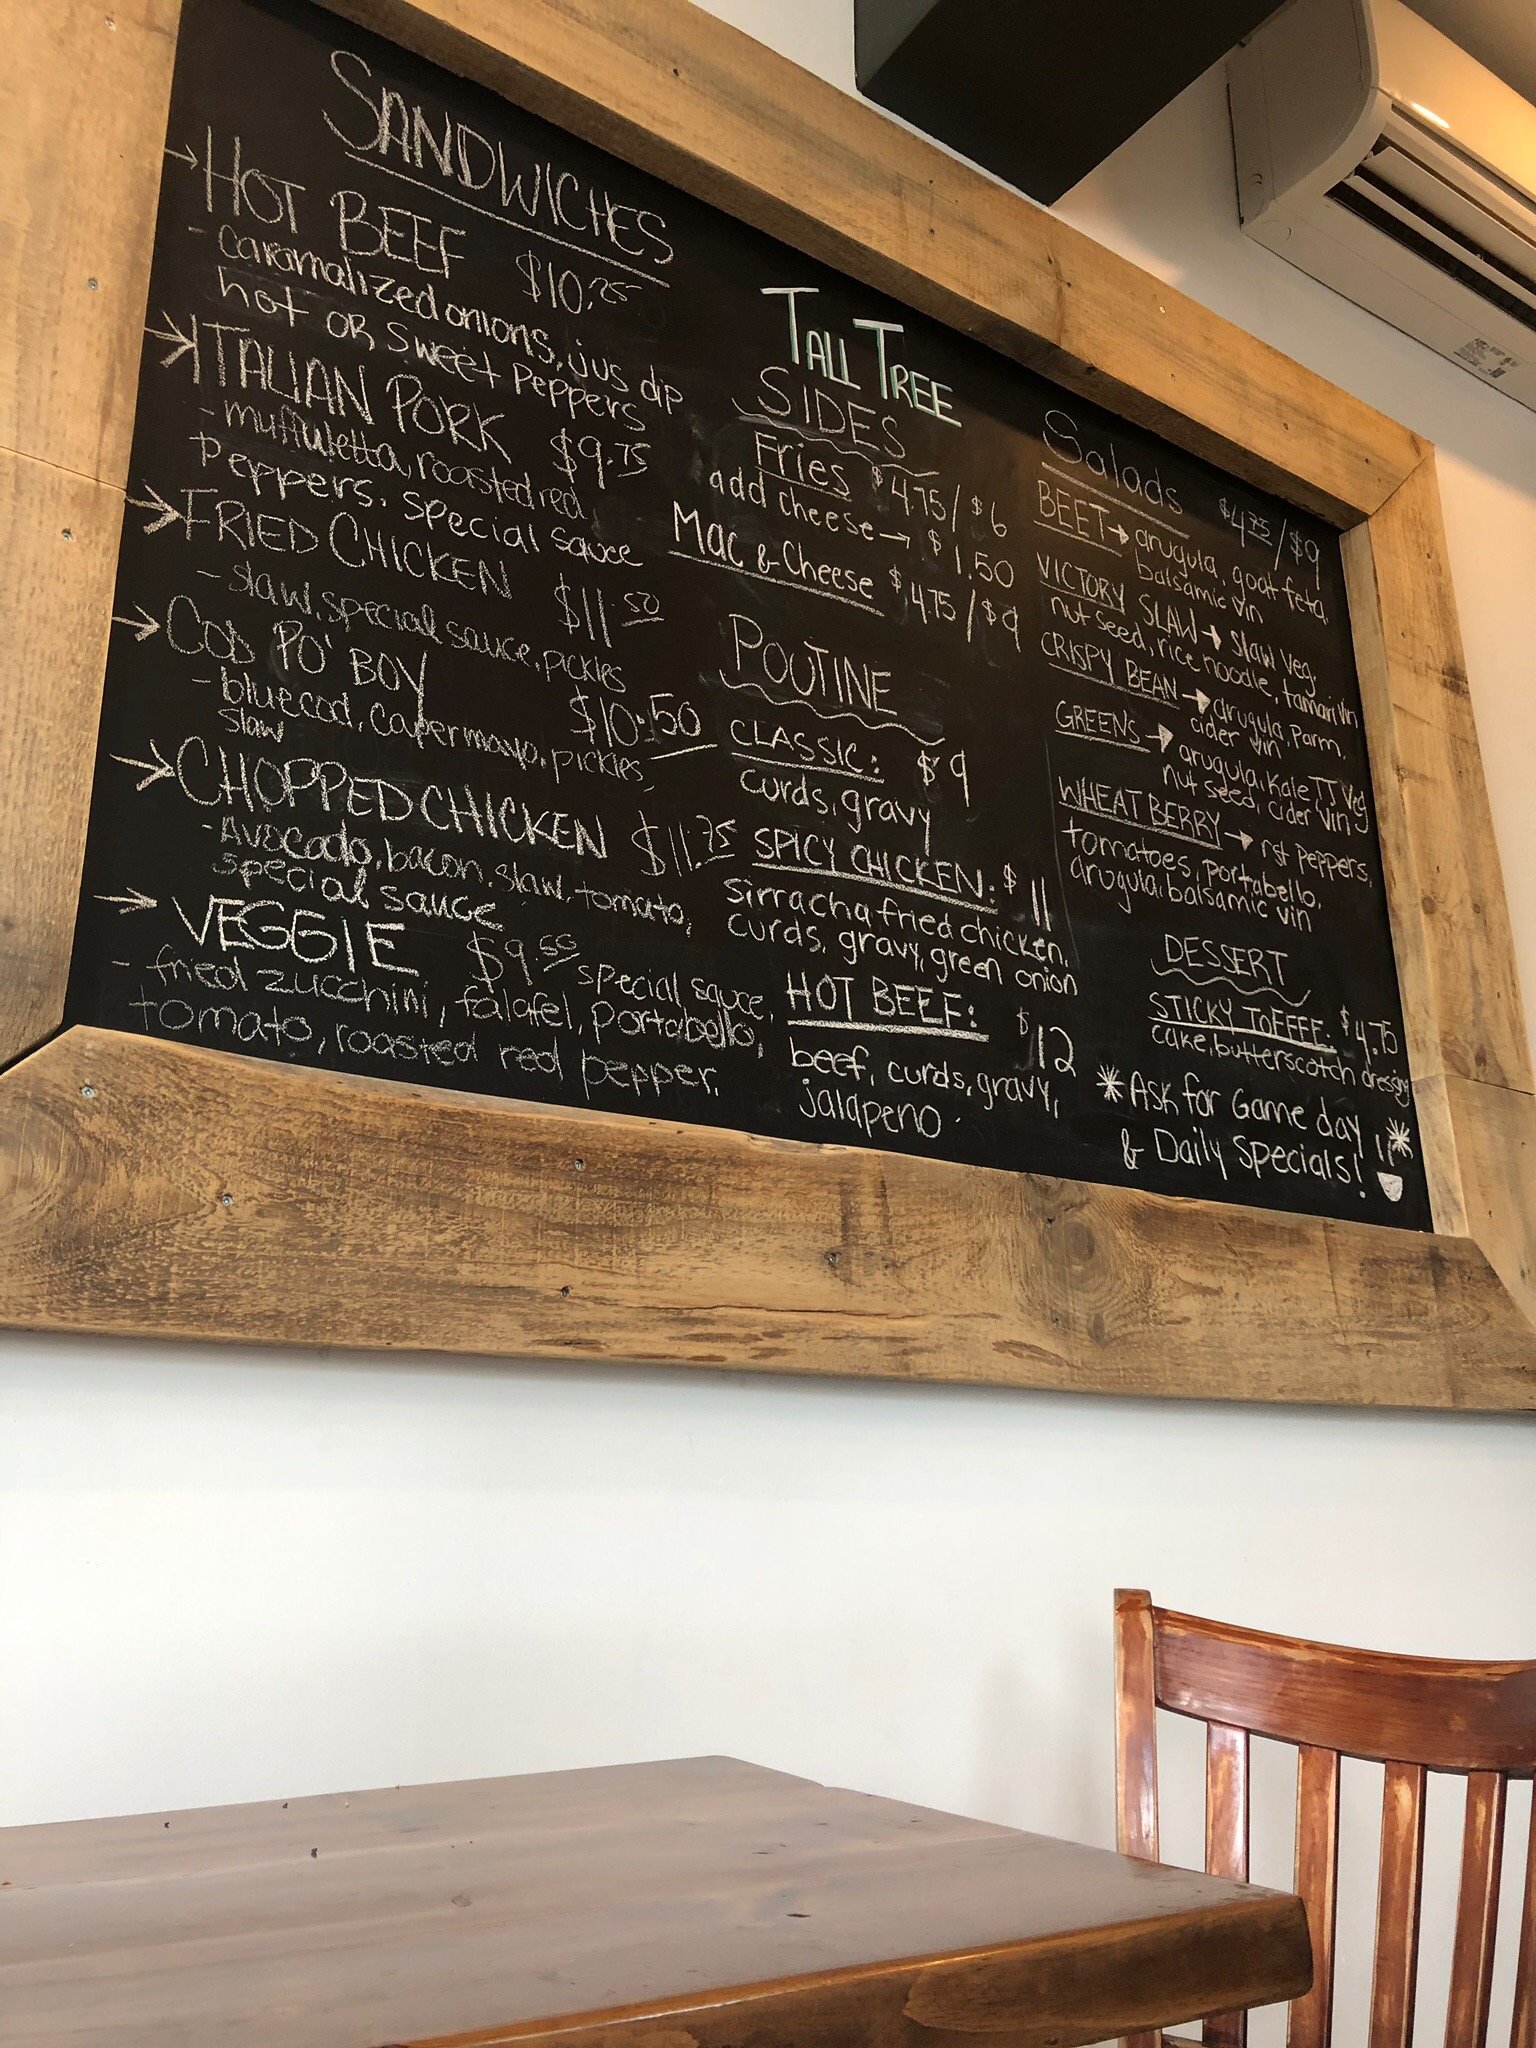 SANDWICHES
→ HOT BEEF $10.25
- caramalized onions, jus dip
hot OR sweet peppers
→ ITALIAN PORK $9.75
- muffuletta, roasted red
peppers, special sauce
→ FRIED CHICKEN $11.50
- slaw, special sauce, pickles
→ COD PO' BOY $10.50
- blue cod, caper mayo, pickles,
slaw
→ CHOPPED CHICKEN $11.75
- Avocado, bacon, slaw, tomato,
special sauce
→ VEGGIE $9.50
- fried zucchini, falafel, portabello, special sauce,
tomato, roasted red pepper.
TALL TREE
SIDES
Fries $4.75 / $6
add cheese → $1.50
Mac & Cheese $4.75 / $9
POUTINE
CLASSIC: $9
curds, gravy
SPICY CHICKEN: $11
sirracha fried chicken,
curds, gravy, green onion
HOT BEEF: $12
beef, curds, gravy,
jalapeno
Salads $4.75 / $9
BEET → arugula, goat feta,
balsamic vin
VICTORY SLAW → slaw veg,
nut seed, rice noodle, tamari vin
CRISPY BEAN → arugula, Parm,
cider vin
GREENS → arugula, Kale, TT Veg
nut seed, cider vin
WHEAT BERRY → rst peppers,
tomatoes, portabello,
arugula, balsamic vin
DESSERT
STICKY TOFFEE: $4.75
cake, butterscotch dressing
* Ask for Game day *
& Daily Specials!